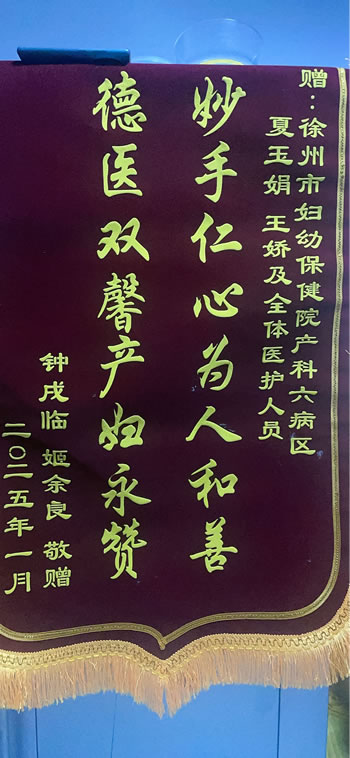 赠：徐州市妇幼保健院产科六病区
夏玉娟 王娇及全体医护人员
妙手仁心为人和善
德医双馨产妇永赞
钟戌临 姬余良 敬赠
二〇二五年一月